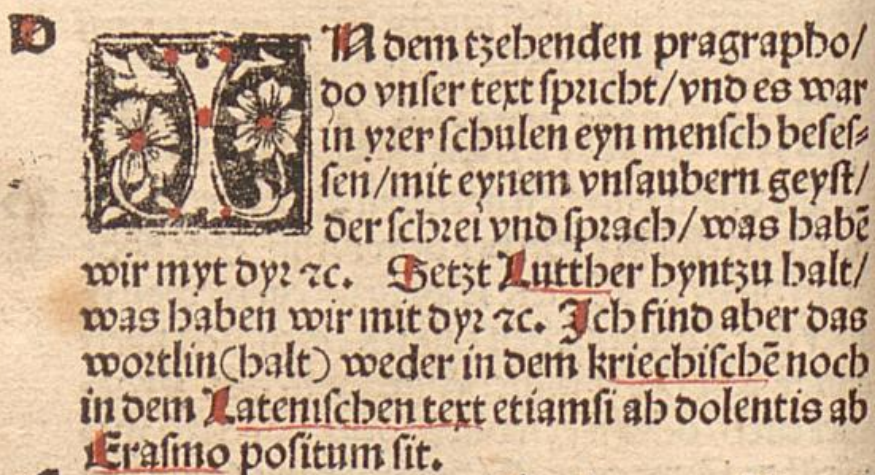 D
IN dem tzehenden pragrapho/
do vnser text spricht/vnd es war
in yrer schulen eyn mensch beses⸗
sen/mit eynem vnsaubern geyst/
der schrei vnd sprach/was habē
wir myt dyr ⁊c. Setzt Lutther hyntzu halt/
was haben wir mit dyr ⁊c. Ich find aber das
wortlin(halt) weder in dem kriechischē noch
in dem Latenischen text etiamsi ab dolentis ab
Erasmo positum sit.